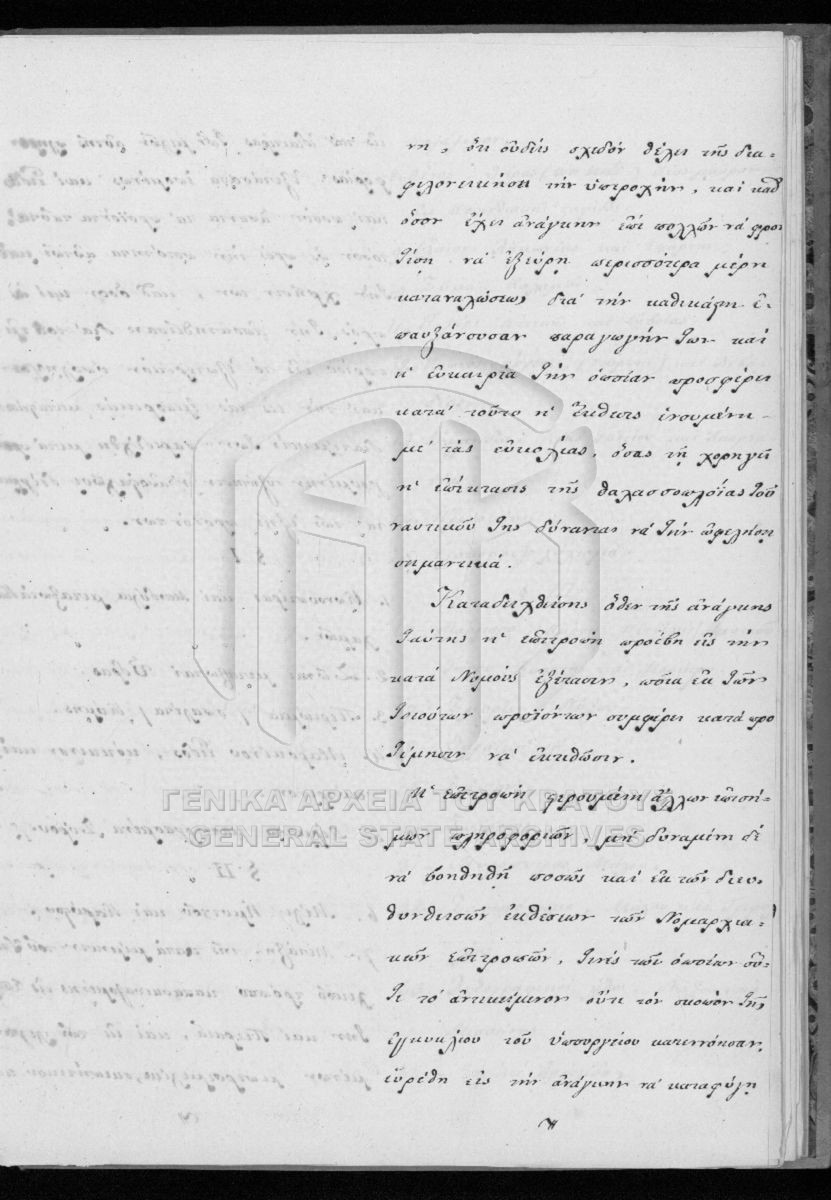 νη, ὅτι οὐδεὶς σχεδὸν θέλει τῆς δια-
φιλονεικήσει τὴν ὑπεροχήν, καὶ καθ'
ὅσον ἔχει ἀνάγκην ἐπὶ πολλῶν νὰ φρον
τίσῃ νὰ ἐξεύρῃ περισσότερα μέρη
καταναλώσεως διὰ τὴν καθεκάστην ἐ-
παυξάνουσαν παραγωγήν των καὶ
ἡ εὐκαιρία τὴν ὁποίαν προσφέρει
κατὰ τοῦτο ἡ Ἔκθεσις ἑνουμένη
μὲ τὰς εὐκολίας, ὅσας τῇ χορηγεῖ
ἡ ἐπέκτασις τῆς θαλασσοπλοΐας τοῦ
ναυτικοῦ της δύναται νὰ τὴν ὠφελήσῃ
σημαντικά.
Καταδειχθείσης ὅθεν τῆς ἀνάγκης
ταύτης ἡ ἐπιτροπὴ προέβη εἰς τὴν
κατὰ Νομοὺς ἐξέτασιν, ποῖα ἐκ τῶν
τοιούτων προϊόντων συμφέρει κατὰ προ
τίμησιν νὰ ἐκτεθῶσιν.
Ἡ ἐπιτροπὴ στερουμένη ἄλλων ἐπισή-
μων πληροφοριῶν, μὴ δυναμένη δὲ
νὰ βοηθηθῇ ποσῶς καὶ ἐκ τῶν διευ-
θυνθεισῶν ἐκθέσεων τῶν Νομαρχια-
κῶν ἐπιτροπῶν, τινὲς τῶν ὁποίων οὔ-
τε τὸ ἀντικείμενον οὔτε τὸν σκοπὸν τῆς
ἐγκυκλίου τοῦ ὑπουργείου κατενόησαν,
εὑρέθη εἰς τὴν ἀνάγκην νὰ καταφύγῃ
ΓΕΝΙΚΑ ΑΡΧΕΙΑ ΤΟΥ ΚΡΑΤΟΥΣ
GENERAL STATE ARCHIVES